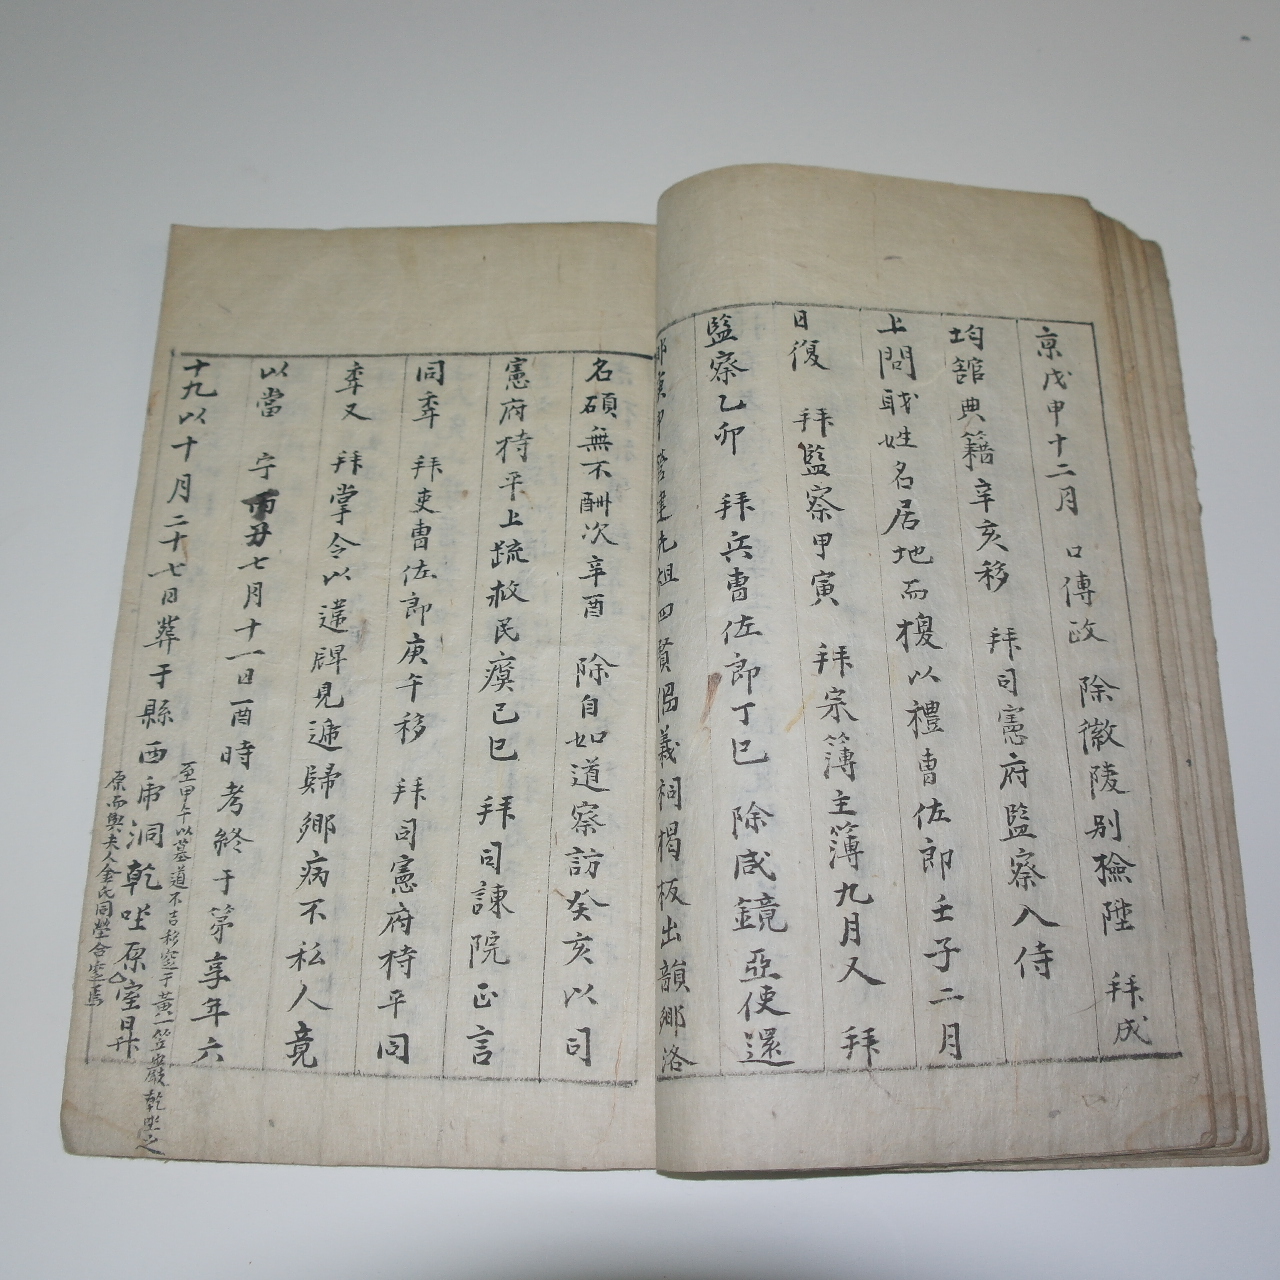 京戊申十二月 口傳政 除徽陵別檢陞 拜成
均館典籍辛亥移 拜司憲府監察入侍
上問職姓名居地而授以禮曹佐郎壬子二月
日復 拜監察甲寅 拜宗簿主簿九月又 拜
監察乙卯 拜兵曹佐郎丁巳 除咸鏡亞使還
營建先祖四賢 義祠揭板出韻鄉洛
名碩無不酬次辛酉 除自如道察訪癸亥以司
憲府持平上疏救民瘼己巳 拜司諫院正言
同季 拜吏曹佐郎庚午移 拜司憲府持平同
季又 拜掌令以違牌見遞歸鄉病不私人竟
以當 宁丙丑七月十一日酉時考終于第享年六
十九以十月二十七日葬于縣西 洞乾坐原室
至甲午以墓道不吉移窆于黃 笠巖乾坐之
原而與夫人金氏同塋合窆焉